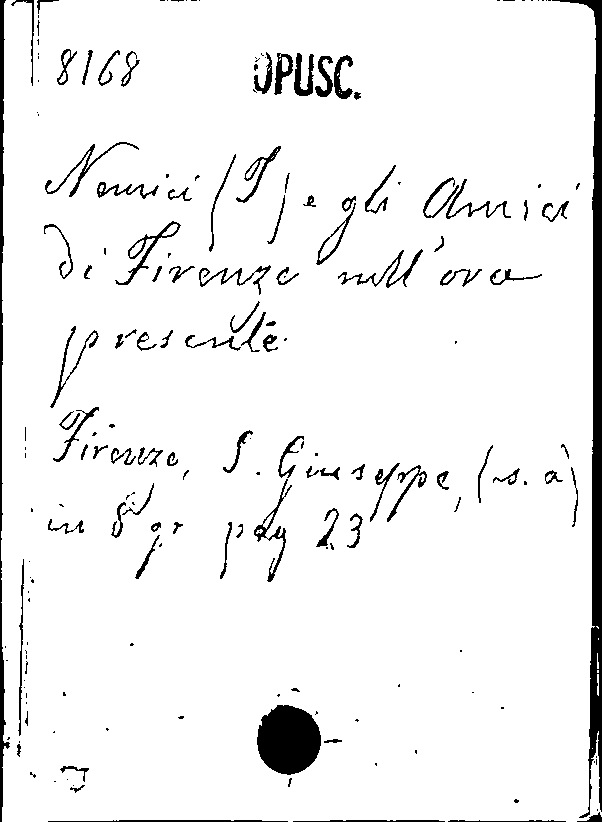 8168 OPUSC.
Nemici (I) e gli Amici
di Firenze nell'ora
presente
Firenze, S. Giuseppe, (s. a)
in 8° gr pag 23